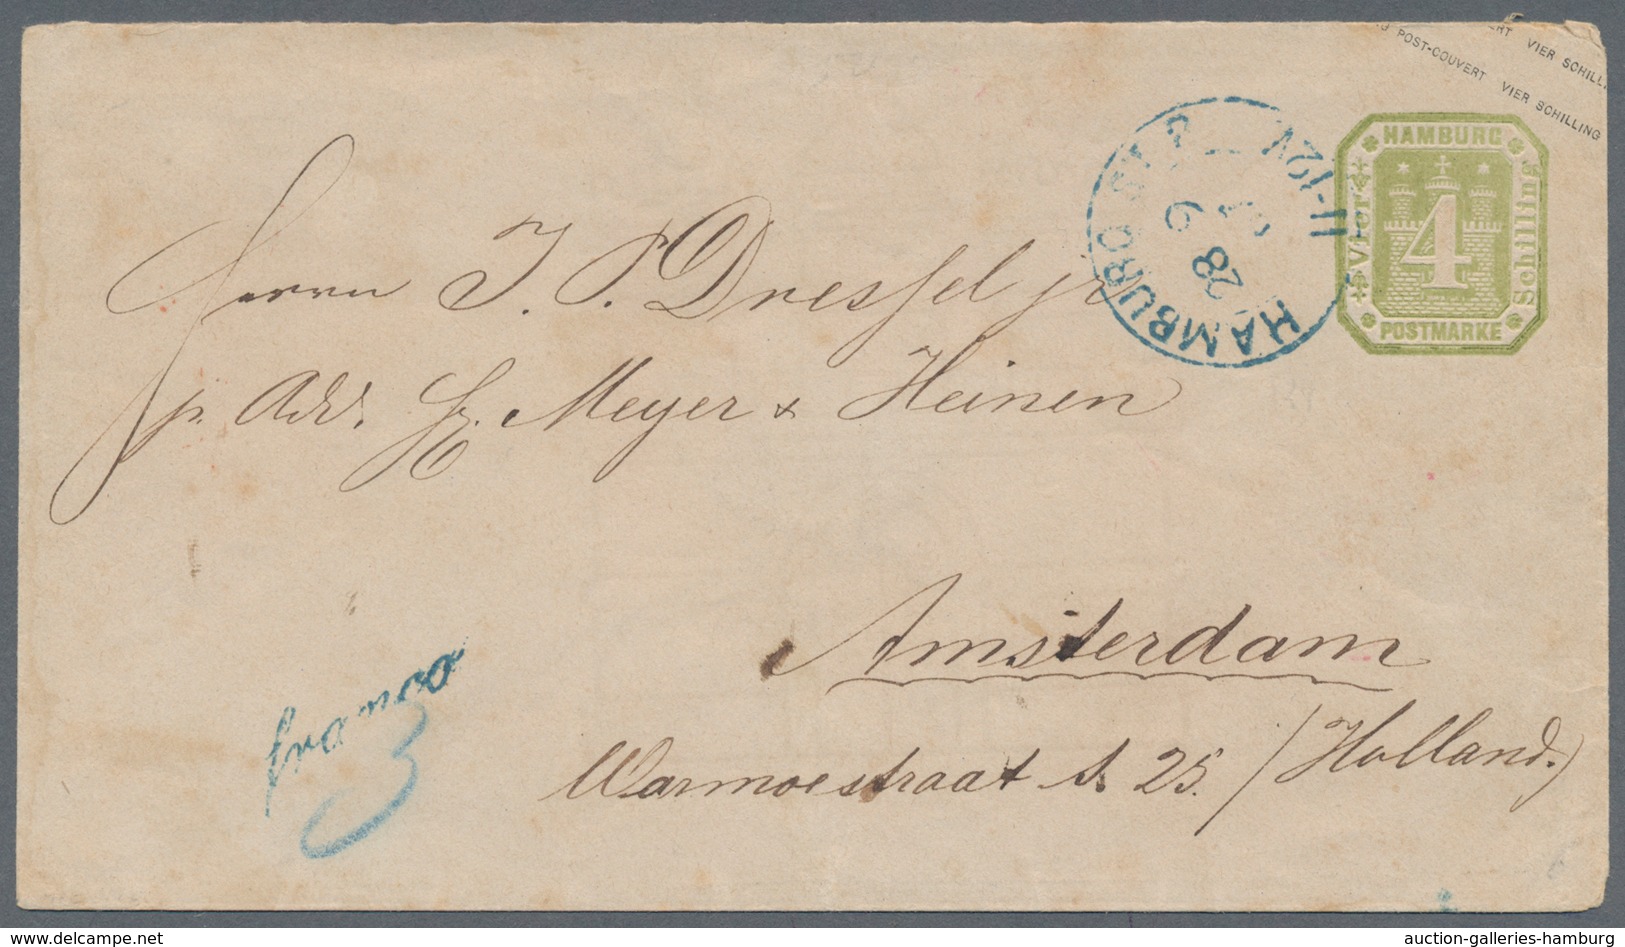 VIER SCHILLI
POST-COUVERT VIER SCHILLING
HAMBURG
Vier
4
Schilling
POSTMARKE
HAMBURG ST.P.
11-12V
28
6
Herrn J. P. Dressel jr
p. Adr. H. Meyer & Heinen
Amsterdam
franco
3
Warmoestraat 25. (Holland.)
www.delcampe.net
auction-galleries-hamburg